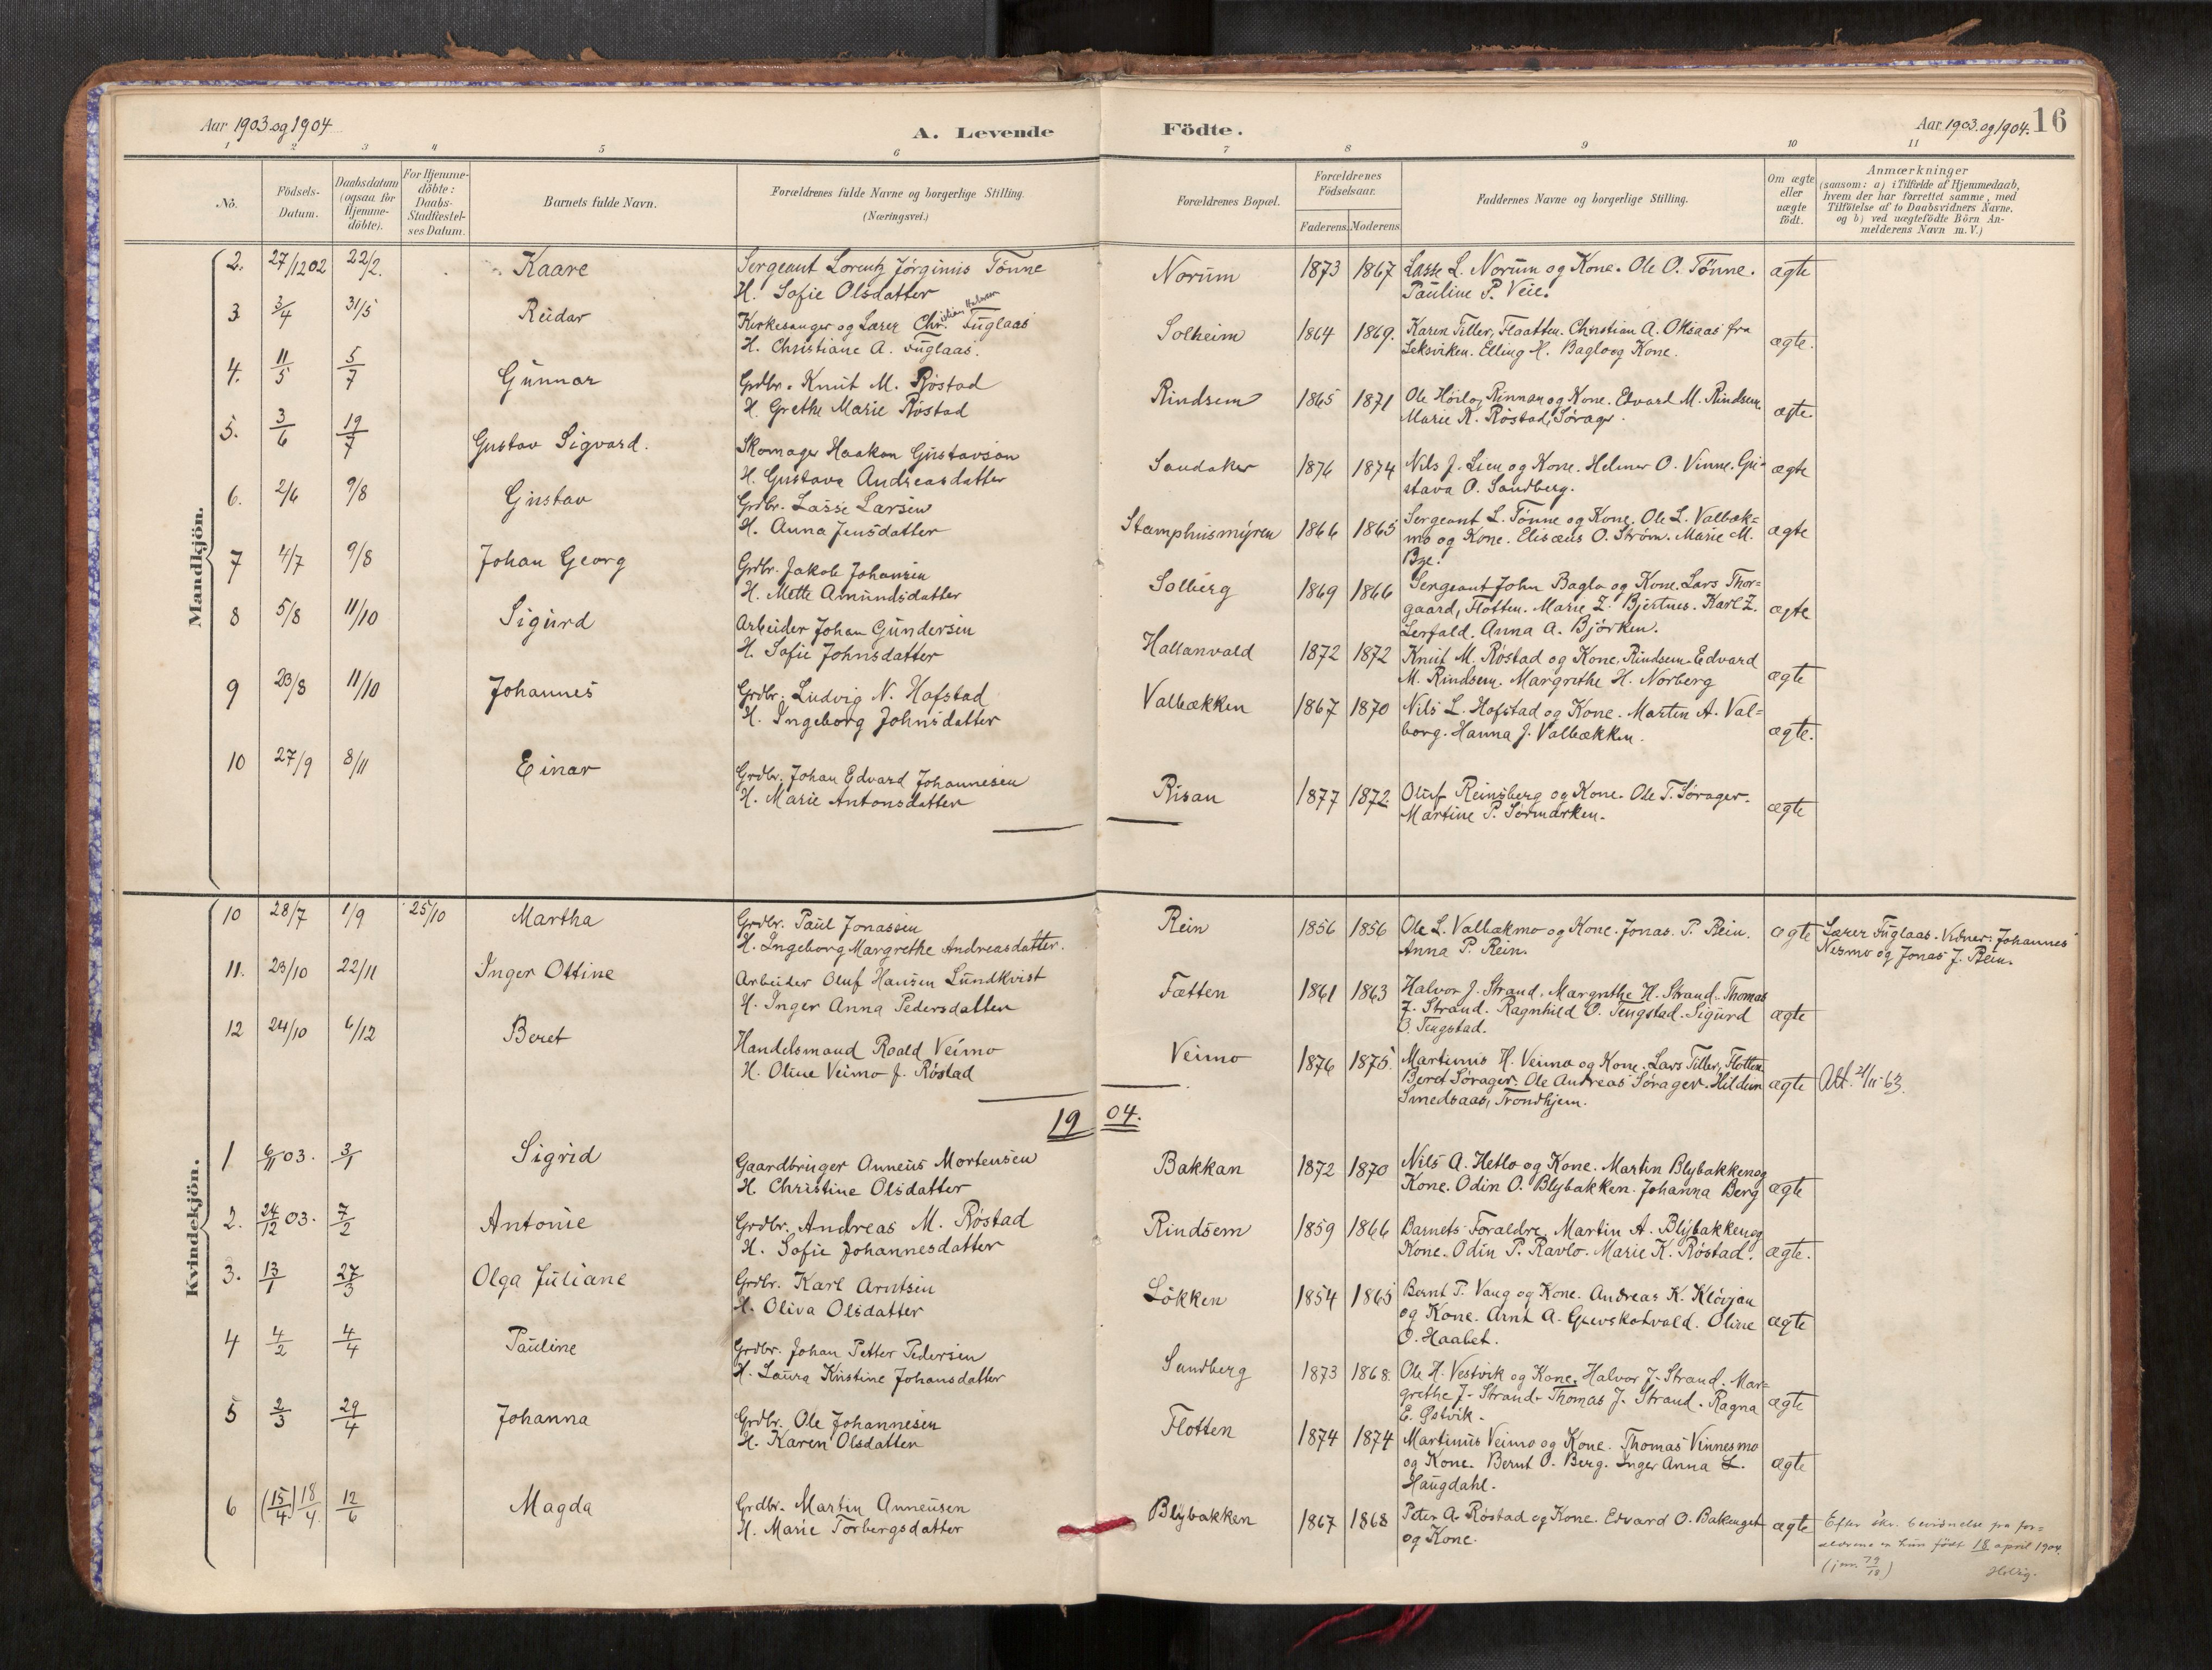 Aar 1903 og 1904
A. Levende Födte.
Aar 1903 og 1904. 16
1 2 3 4 5 6 7 8 9 10 11
No.
Födsels-
Datum.
Daabsdatum
(ogsaa for
Hjemme-
döbte).
For Hjemme-
döbte:
Daabs-
Stadfæstel-
ses Datum.
Barnets fulde Navn.
Forældrenes fulde Navne og borgerlige Stilling.
(Næringsvei.)
Forældrenes Bopæl.
Forældrenes
Födselsaar.
Faderens. Moderens
Faddernes Navne og borgerlige Stilling.
Om ægte
eller
uægte
födt.
Anmærkninger
(saasom: a) i Tilfælde af Hjemmedaab,
hvem der har forrettet samme, med
Tilföielse af to Daabsvidners Navne,
og b) ved uægtefödte Börn An-
melderens Navn m. V.)
Mandkjön.
2. 27/12 02 22/2. Kaare Sergeant Lorentz Jörginus Tönne Norum 1873 1867 Lasse L. Norum og Kone. Ole O. Tönne. ægte
H. Sofie Olsdatter Pauline P. Veie.
3 3/4 31/5 Reidar Kirkesanger og Lærer Chr. Fuglaas Solheim 1864 1869. Karen Tiller, Flaatten. Christian A. Olsaas fra ægte.
H. Christiane A. Fuglaas. Leksviken. Elling H. Baglo og Kone.
4. 11/5 5/7 Gunnar Grdbr. Knut M. Röstad Rindsem 1865 1871 Ole Höilo, Rinnan og Kone. Edvard M. Rindsem. ægte.
H. Grethe Marie Röstad Marie K. Röstad, Sörager.
5. 3/6 19/7 Gustav Sigvard. Skomager Haakon Gustavson Sandaker 1876 1874 Nils J. Lien og Kone. Helmer O. Vinne. Gu- ægte
H. Gustava Andreasdatter stava O. Sandberg.
6. 2/6 9/8 Gustav Grdbr. Lasse Larsen Stamphusmyren 1866 1865 Sergeant L. Tönne og Kone. Ole L. Valbæk= ægte
H. Anna Jensdatter mo og Kone. Elisæus O. Ström. Marie M.
Bye.
7 4/7 9/8 Johan Georg Grdbr. Jakob Johansen Solberg 1869 1866 Sergeant John Baglo og Kone. Lars Thor= ægte
H. Mette Amundsdatter gaard, Flotten. Marie Z. Bjertnes. Karl Z.
Lerfald. Anna A. Björken.
8 5/8 11/10 Sigurd Arbeider Johan Gundersen Hallanvald 1872 1872 Knut M. Röstad og Kone, Rindsem. Edvard ægte
H. Sofie Johnsdatter M. Rindsem. Margrethe H. Norberg
9 23/8 11/10 Johannes Grdbr. Ludvig N. Hofstad Valbækken 1867 1870 Nils L. Hofstad og Kone. Marten A. Val= ægte.
H. Ingeborg Johnsdatter borg. Hanna J. Valbækken.
10 27/9 8/11 Einar Grdbr. Johan Edvard Johannesen Risan 1877 1872. Oluf Reinsberg og Kone. Ole T. Sörager. ægte
H. Marie Antonsdatter Martine P. Sörmarken.
Kvindekjön.
10 28/7 1/9 25/10 Martha Grdbr. Paul Jonassen Rein 1856 1856 Ole L. Valbækmo og Kone. Jonas P. Rein. ægte Lærer Fuglaas. Vidner: Johannes
H. Ingeborg Margrethe Andreasdatter. Anna P. Rein. Nesmo og Jonas J. Rein.
11. 23/10 22/11 Inger Ottine Arbeider Oluf Hansen Lundkvist Fætten 1861 1863 Halvor J. Strand, Margrethe H. Strand. Thomas ægte
H. Inger Anna Pedersdatter J. Strand. Ragnhild O. Tengstad. Sigurd
O. Tengstad.
12 24/10 6/12 Beret Handelsmand Roald Veimo Veimo 1876 1875. Martinus H. Veimo og Kone. Lars Tiller, Flotten ægte Att. 21/11-63.
H. Oline Veimo f. Röstad Beret Sörager. Ole Andreas Sörager. Hildum
Smedsaas, Trondhjem.
19 04.
1 6/11 03. 3/1 Sigrid Gaardbruger Anneus Mortensen Bakkan 1872 1870 Nils A. Hetlo og Kone. Martin Blybakken og ægte
H. Christine Olsdatter Kone. Odin O. Blybakken. Johanna Berg
2. 24/12 03. 7/2 Antonie Grdbr. Andreas M. Röstad Rindsem 1859 1866 Barnets Forældre, Martin A. Blybakken og ægte.
H. Sofie Johannesdatter Kone. Odin P. Ravlo. Marie K. Röstad.
3. 13/1 27/3 Olga Juliane Grdbr. Karl Arntsen Lökken 1854 1865 Bernt P. Vang og Kone. Andreas K. Klövjan ægte
H. Oliva Olsdatter og Kone. Arnt A. Grevskotvald. Oline
O. Haabet.
4 4/2 4/4 Pauline Grdbr. Johan Petter Pedersen Sundberg 1873 1868. Ole H. Vestvik og Kone. Halvor J. Strand. Mar= ægte
H. Laura Kristine Johansdatter grethe J. Strand. Thomas J. Strand. Ragna
E. Östvik.
5 2/3 29/4 Johanna Grdbr. Ole Johannesen Flotten 1874 1874 Martinus Veimo og Kone. Thomas Vinnesmo ægte
H. Karen Olsdatter og Kone. Bernt O. Berg. Inger Anna L.
Haugdahl.
6 (15/4) 18/4. 12/6 Magda Grdbr. Martin Anneusen Blybakken 1867 1868 Peter A. Röstad og Kone. Edvard O. Bakenget ægte Efter skr. bevidnelse fra for=
H. Marie Torbergsdatter og Kone. ældrene er hun födt 18 april 1904.